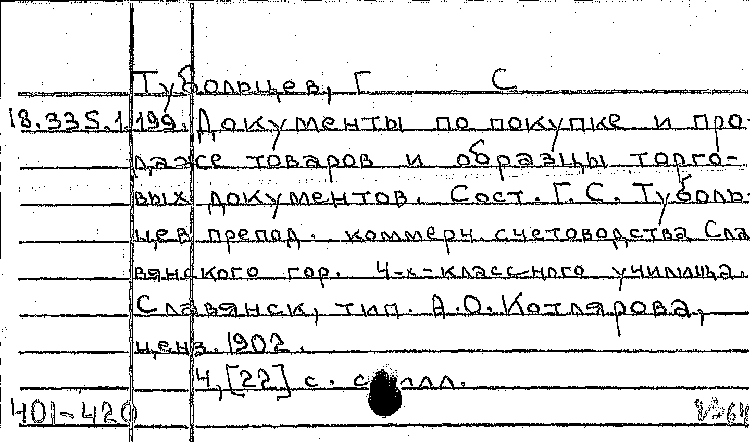 Тубольцев, Г С
18.335.1.199. Документы по покупке и про-
даже товаров и образцы торго-
вых документов. Сост. Г. С. Туболь-
цев препод. коммерч. счетоводства Сла
вянского гор. 4-х-классного училища.
Славянск, тип. А. О. Котлярова,
ценз. 1902.
4, [22] с. с илл.
401-420